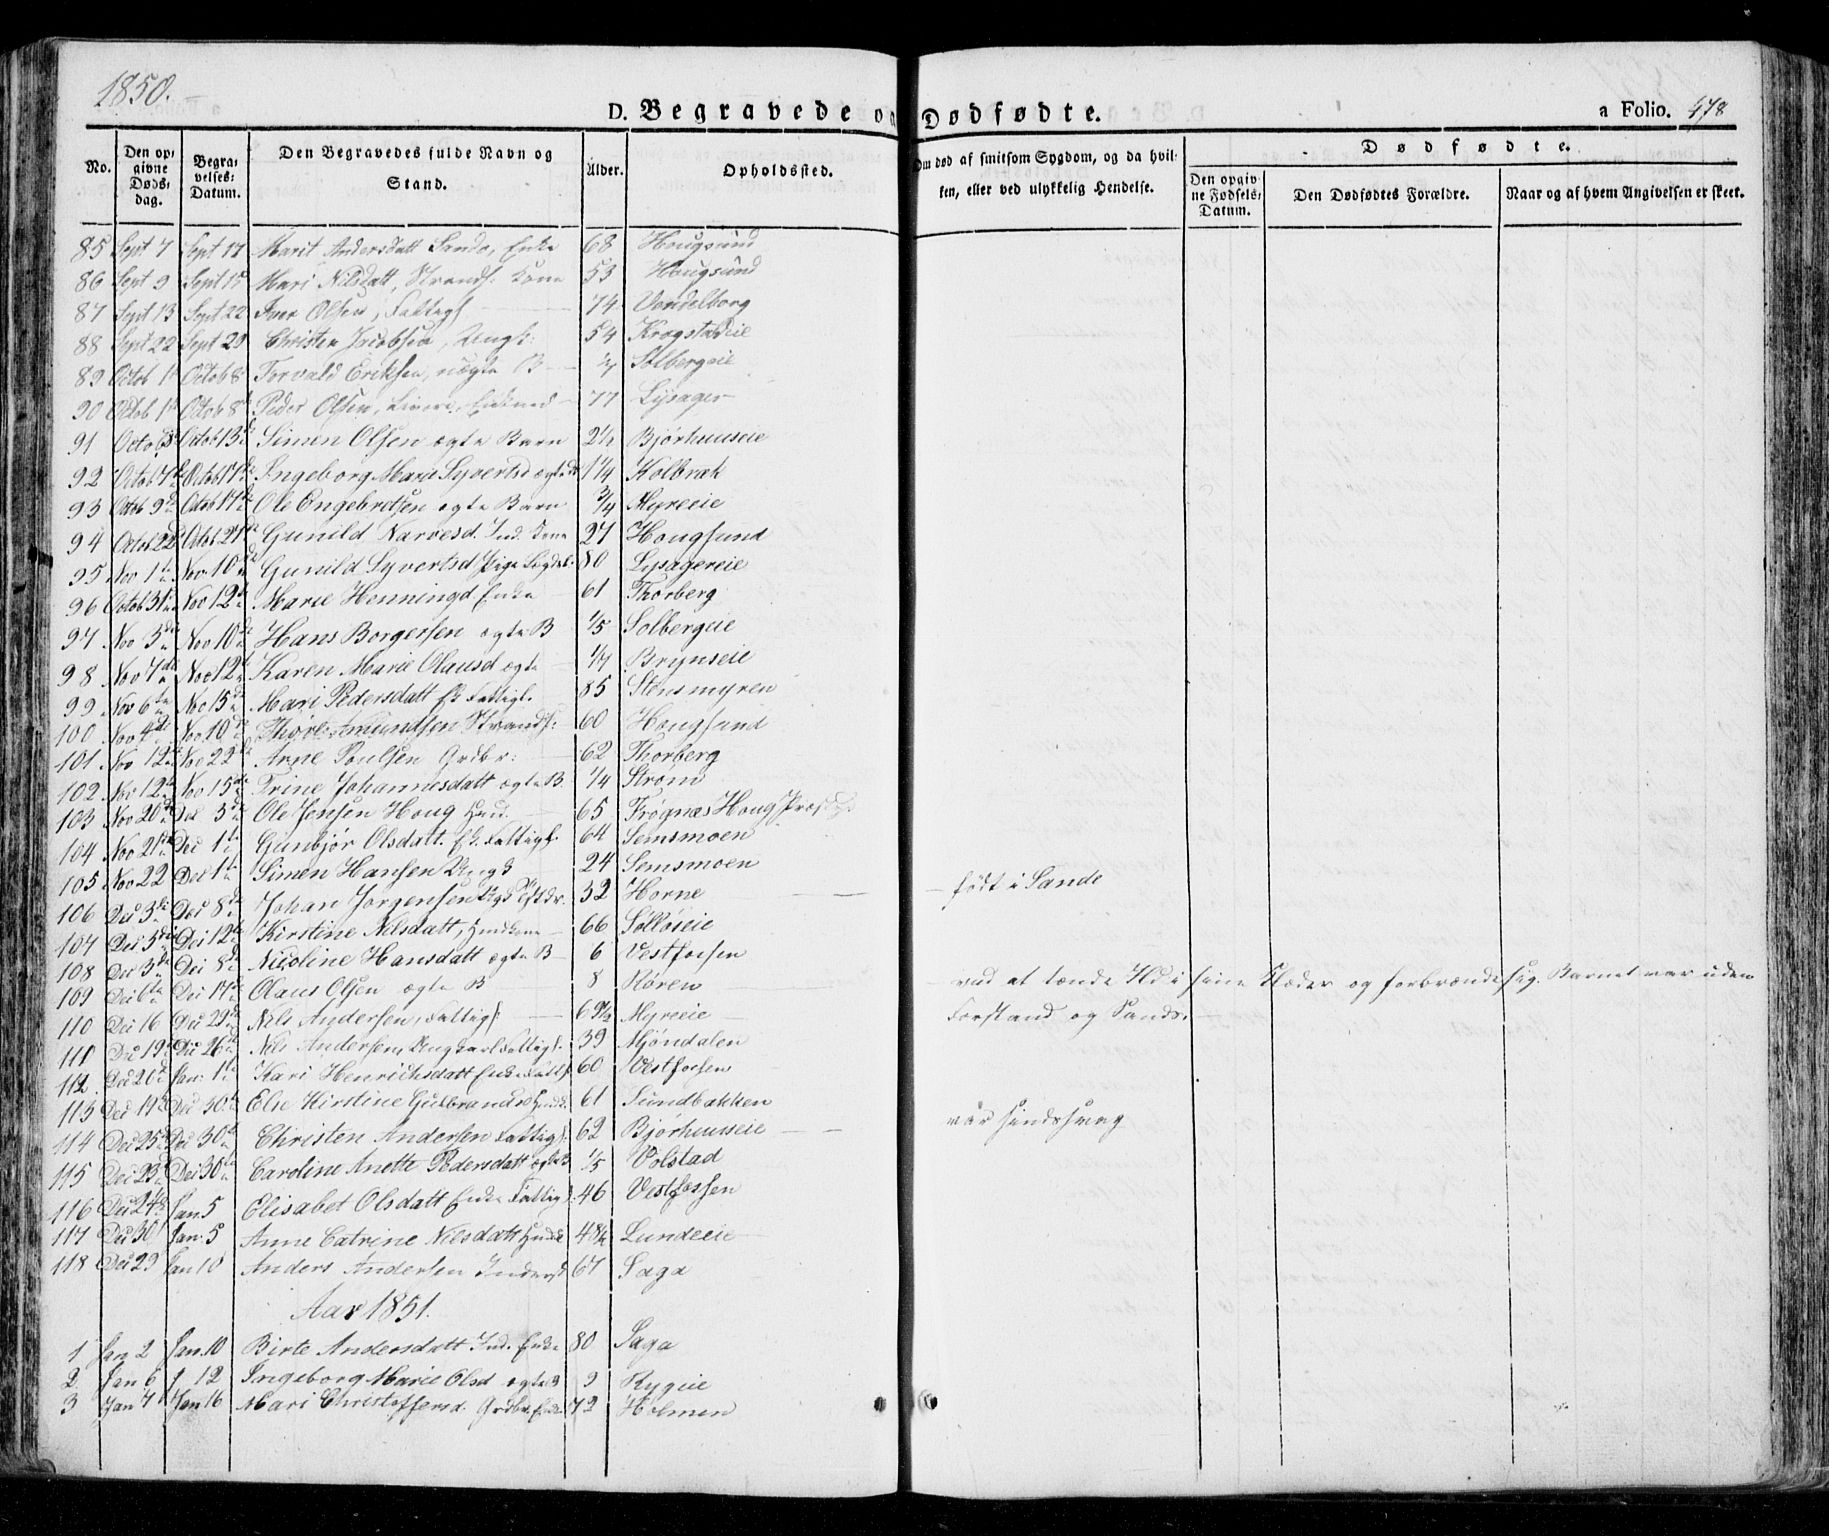 1850.
D. Begravede og Dødfødte.
a Folio. 478
No. Den opgivne Dødsdag. Begravelses Datum. Den Begravedes fulde Navn og Stand. Alder. Opholdssted. Om død af smitsom Sygdom, og da hvilken, eller ved ulykkelig Hendelse. Dødfødte.
Den opgivne Fødsels Datum. Den Dødfødtes Forældre. Naar og af hvem Angivelsen er skeet.
85 Sept 7 Sept 17 Marit Andersdatt Sando, Enke 68 Hougsund
86 Sept 9 Sept 15 Mari Nilsdatt, Strands. Kone 53 Hougsund
87 Sept 13 Sept 22 Iver Olsen, Fattigl 74 Vendelborg
88 Sept 22 Sept 29 Christen Jacobsen, Ungk: 54 Krogstadeie
89 Octob 1 Octob 8 Torvald Eriksen, uægte B Solbergeie
90 Octob 1 Octob 8 Peder Olsen, Enkmd 77 Lysager
91 Octob 8 Octob 13 Simen Olsen ægte Barn 2½ Bjørhuuseie
92 Octob 7 Octob 17 Ingeborg Marie Syvertsd ægte B 1¼ Kolbræk
93 Octob 9 Octob 17 Ole Engebretsen ægte Barn ¾ Myreeie
94 Octob 22 Octob 27 Gunild Narvesd. Ind. Kone 27 Hougsund
95 Nov 1 Nov 10 Gunild Syvertsd Pige 80 Lysagereie
96 Octob 31 Nov 12 Marie Henningsd Enke 61 Thorberg
97 Nov 3 Nov 10 Hans Borgersen ægte B 1/5 Solbergeie
98 Nov 7 Nov 12 Karen Marie Olausd ægte 1/7 Brynseie
99 Nov 6 Nov 15 Mari Pedersdatt Ek Fattigl. 85 Stensmyren
100 Nov 4 Nov 10 Amundsen Strands: 60 Hougsund
101 Nov 12 Nov 22 Arne Poulsen Grdbr: 62 Thorberg
102 Nov 12 Nov 15 Trine Johannesdatt ægte B. ¼ Strøm
103 Nov 20 Dec 3 Ole Jensen Houg Hmd. 65 Frognæs Houg
104 Nov 21 Dec 1 Gunbjør Olsdatt. Ek. Fattigl. 64 Semsmoen
105 Nov 22 Dec 1 Simen Hansen Ungk 24 Semsmoen
106 Dec 3 Dec 8 Johan Jørgensen 32 Horne født i Sande
107 Dec 3 Dec 12 Kirstine Nilsdatt, Hmdkone 66 Solløseie
108 Dec 3 Dec 8 Nicoline Hansdatt ægte B 6 Vestfossen
109 Dec 6 Dec 17 Olaus Olsen ægte B 8 Røren ved at tænde Ild i sine Klæder og forbrænde sig. Barnet var uden
110 Dec 16 Dec 29 Nils Andersen, Fattigl: 69½ Myreeie Forstand og Sands.
111 Dec 19 Dec 26 Nils Andersen, Ungkarl Fattigl. 39 Mjøndalen
112 Dec 20 Jan: 1 Kari Henrichsdatt Enke Fattl 60 Vestfossen
113 Dec Dec 30 Else Kirstine Gulbrandsd 61 Sundbakken
114 Dec 25 Dec 30 Christen Andersen Fattigl: 62 Bjørhuuseie var sindssvag
115 Dec 23 Dec 30 Caroline Anette Pedersdatt ægte B 1/5 Volstad
116 Dec 24 Jan 5 Elisabet Olsdatt Enke Fattigl. 46 Vestfossen
117 Dec 30 Jan. 5 Anne Catrine Nilsdatt 48½ Lundeeie
118 Dec 29 Jan 10 Anders Andersen Inderst 67 Saga
Aar 1851.
1 Jan 2 Jan. 10 Birte Andersdatt Ind. Enke 80 Saga
2 Jan 6 J 12 Ingeborg Marie Olsd ægte B 9 Rygeie
3 Jan 7 Jan 16 Mari Christoffersd. Grdbr. Enke 72 Holmen